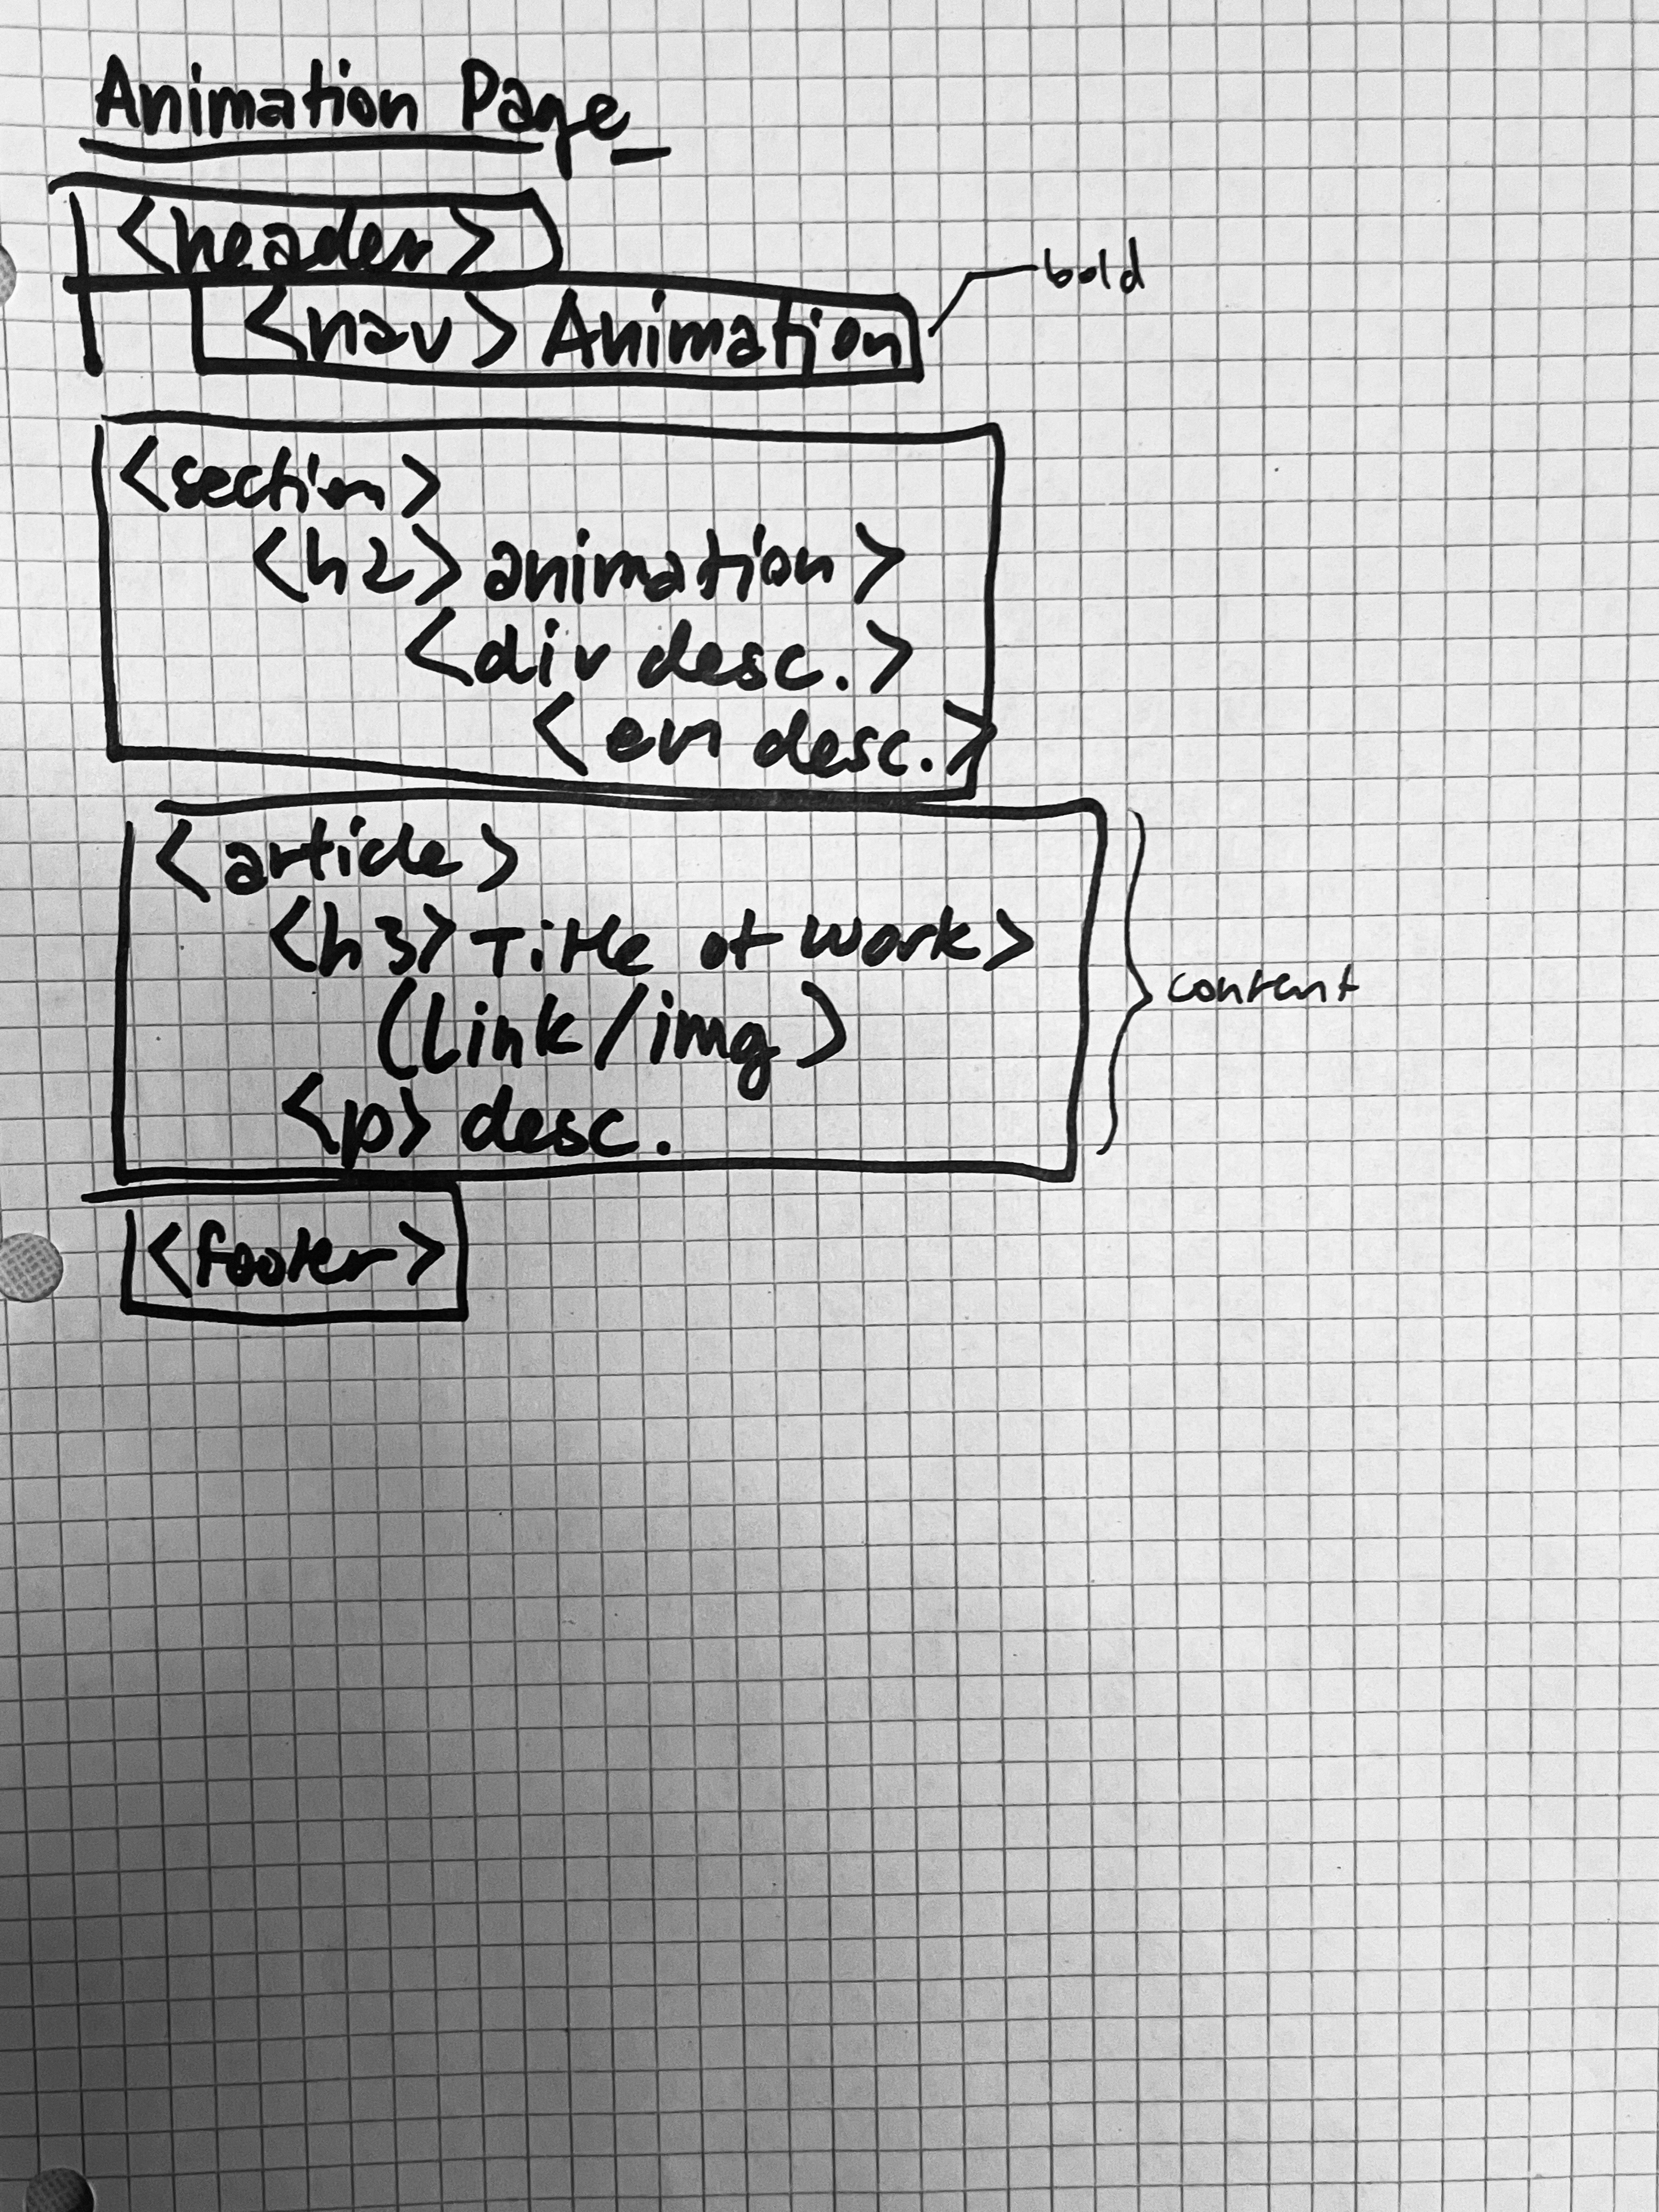 Animation Page_
<header>
bold
<nav> Animation
<section>
<h2> animation>
<div desc.>
<em desc.>
<article>
<h3> Title of work>
(Link/img)
content
<p> desc.
<footer>